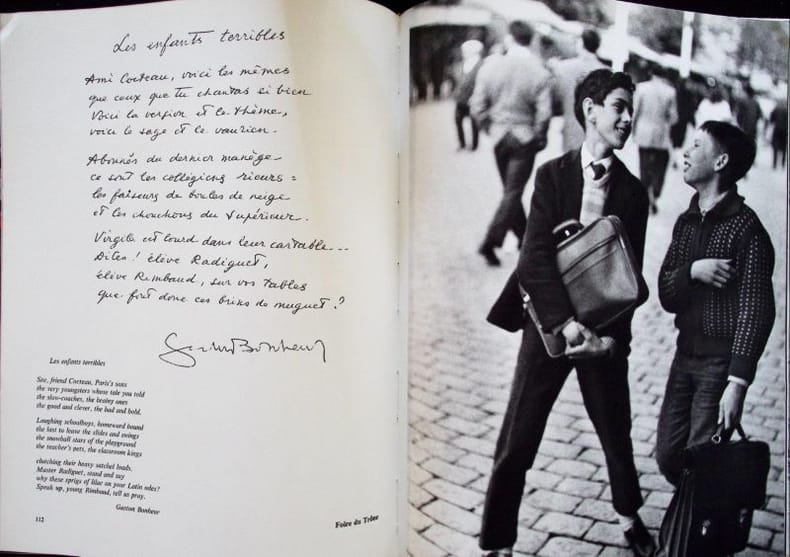 Les enfants terribles
Ami Cocteau, voici les mêmes
que ceux que tu chantas si bien
Voici la version et le thème,
voici le sage et le vaurien.
Abonnés du dernier manège
ce sont les collégiens rieurs :
les faiseurs de boules de neige
et les chouchous du Supérieur.
Virgile est lourd dans leur cartable...
Dites ! élève Radiguet,
élève Rimbaud, sur vos tables
que font donc ces brins de muguet ?
Gaston Bonheur
Les enfants terribles
See, friend Cocteau, Paris's sons
the very youngsters whose tale you told
the slow-coaches, the brainy ones
the good and clever, the bad and bold.
Laughing schoolboys, homeward bound
the last to leave the slides and swings
the snowball stars of the playground
the teacher's pets, the classroom kings
clutching their heavy satchel loads.
Master Radiguet, stand and say
why these sprigs of lilac on your Latin odes?
Speak up, young Rimbaud, tell us pray.
Gaston Bonheur
112
Foire du Trône